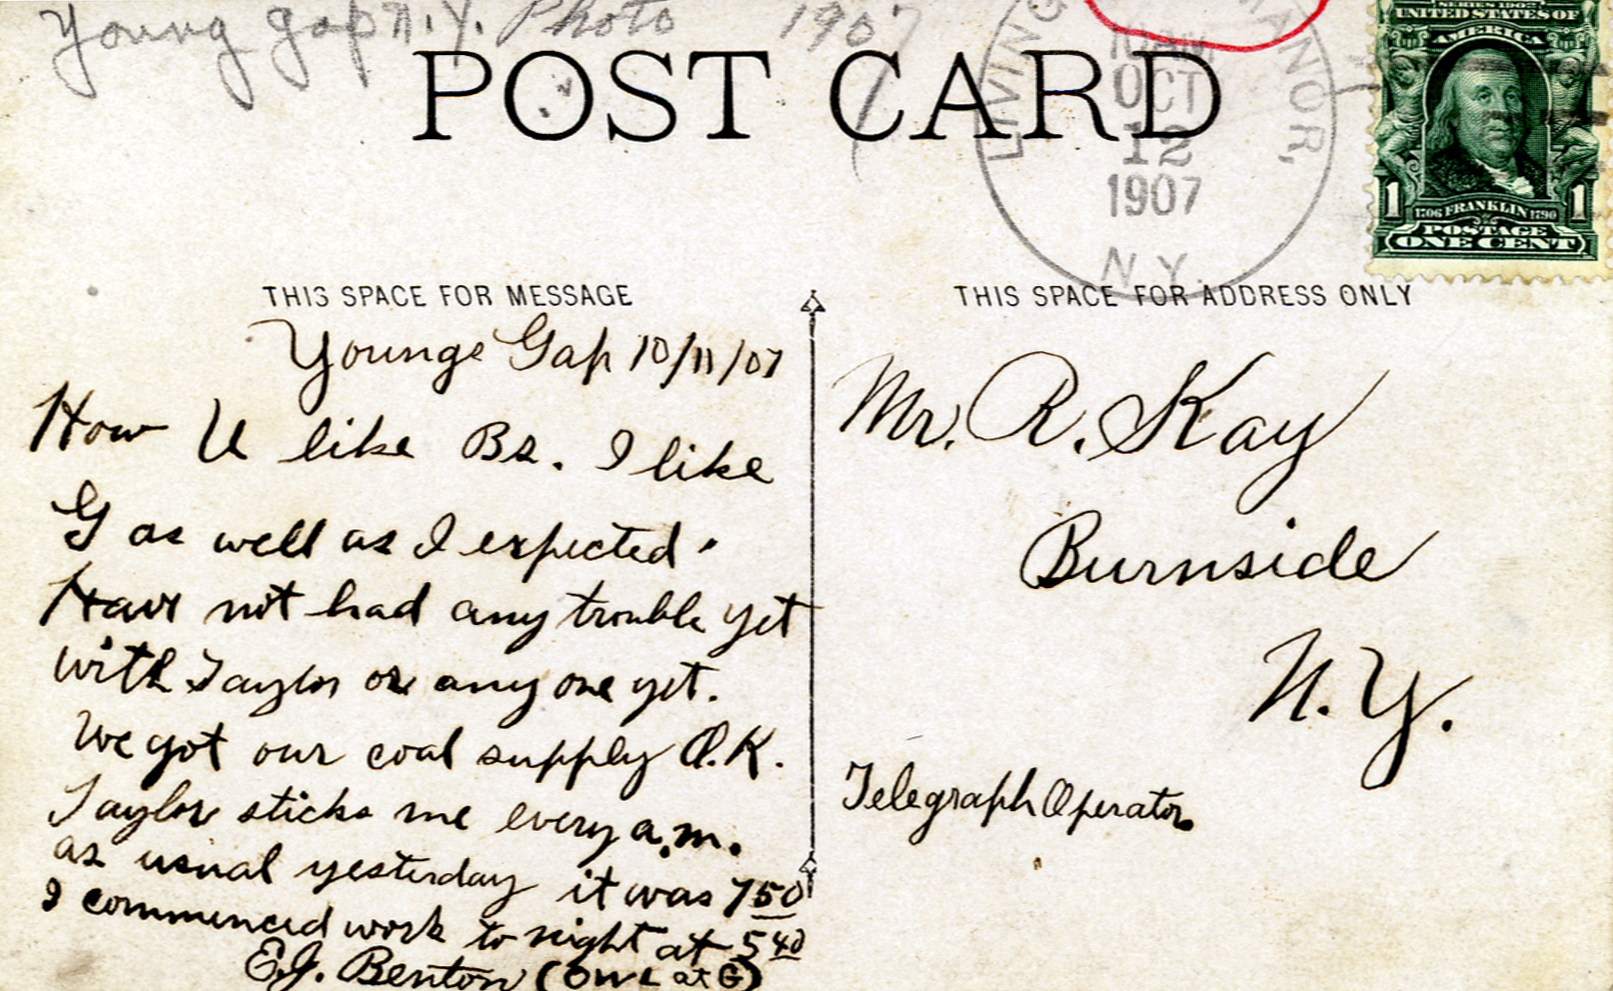 Young Gap N.Y. Photo 1907
POST CARD
LIVINGSTON MANOR,
OCT
12
1907
N.Y.
SERIES 1902
UNITED STATES OF
AMERICA
1 1
1706 FRANKLIN 1790
POSTAGE
ONE CENT
THIS SPACE FOR MESSAGE
Youngs Gap 10/11/07
How U like Bs. I like
G as well as I expected.
Have not had any trouble yet
with Taylor or any one yet.
We got our coal supply O.K.
Taylor sticks me every a.m.
as usual yesterday it was 750
I commenced work to night at 540
E.J. Benton (OWL at G)
THIS SPACE FOR ADDRESS ONLY
Mr. R. Kay
Burnside
N.Y.
Telegraph Operator